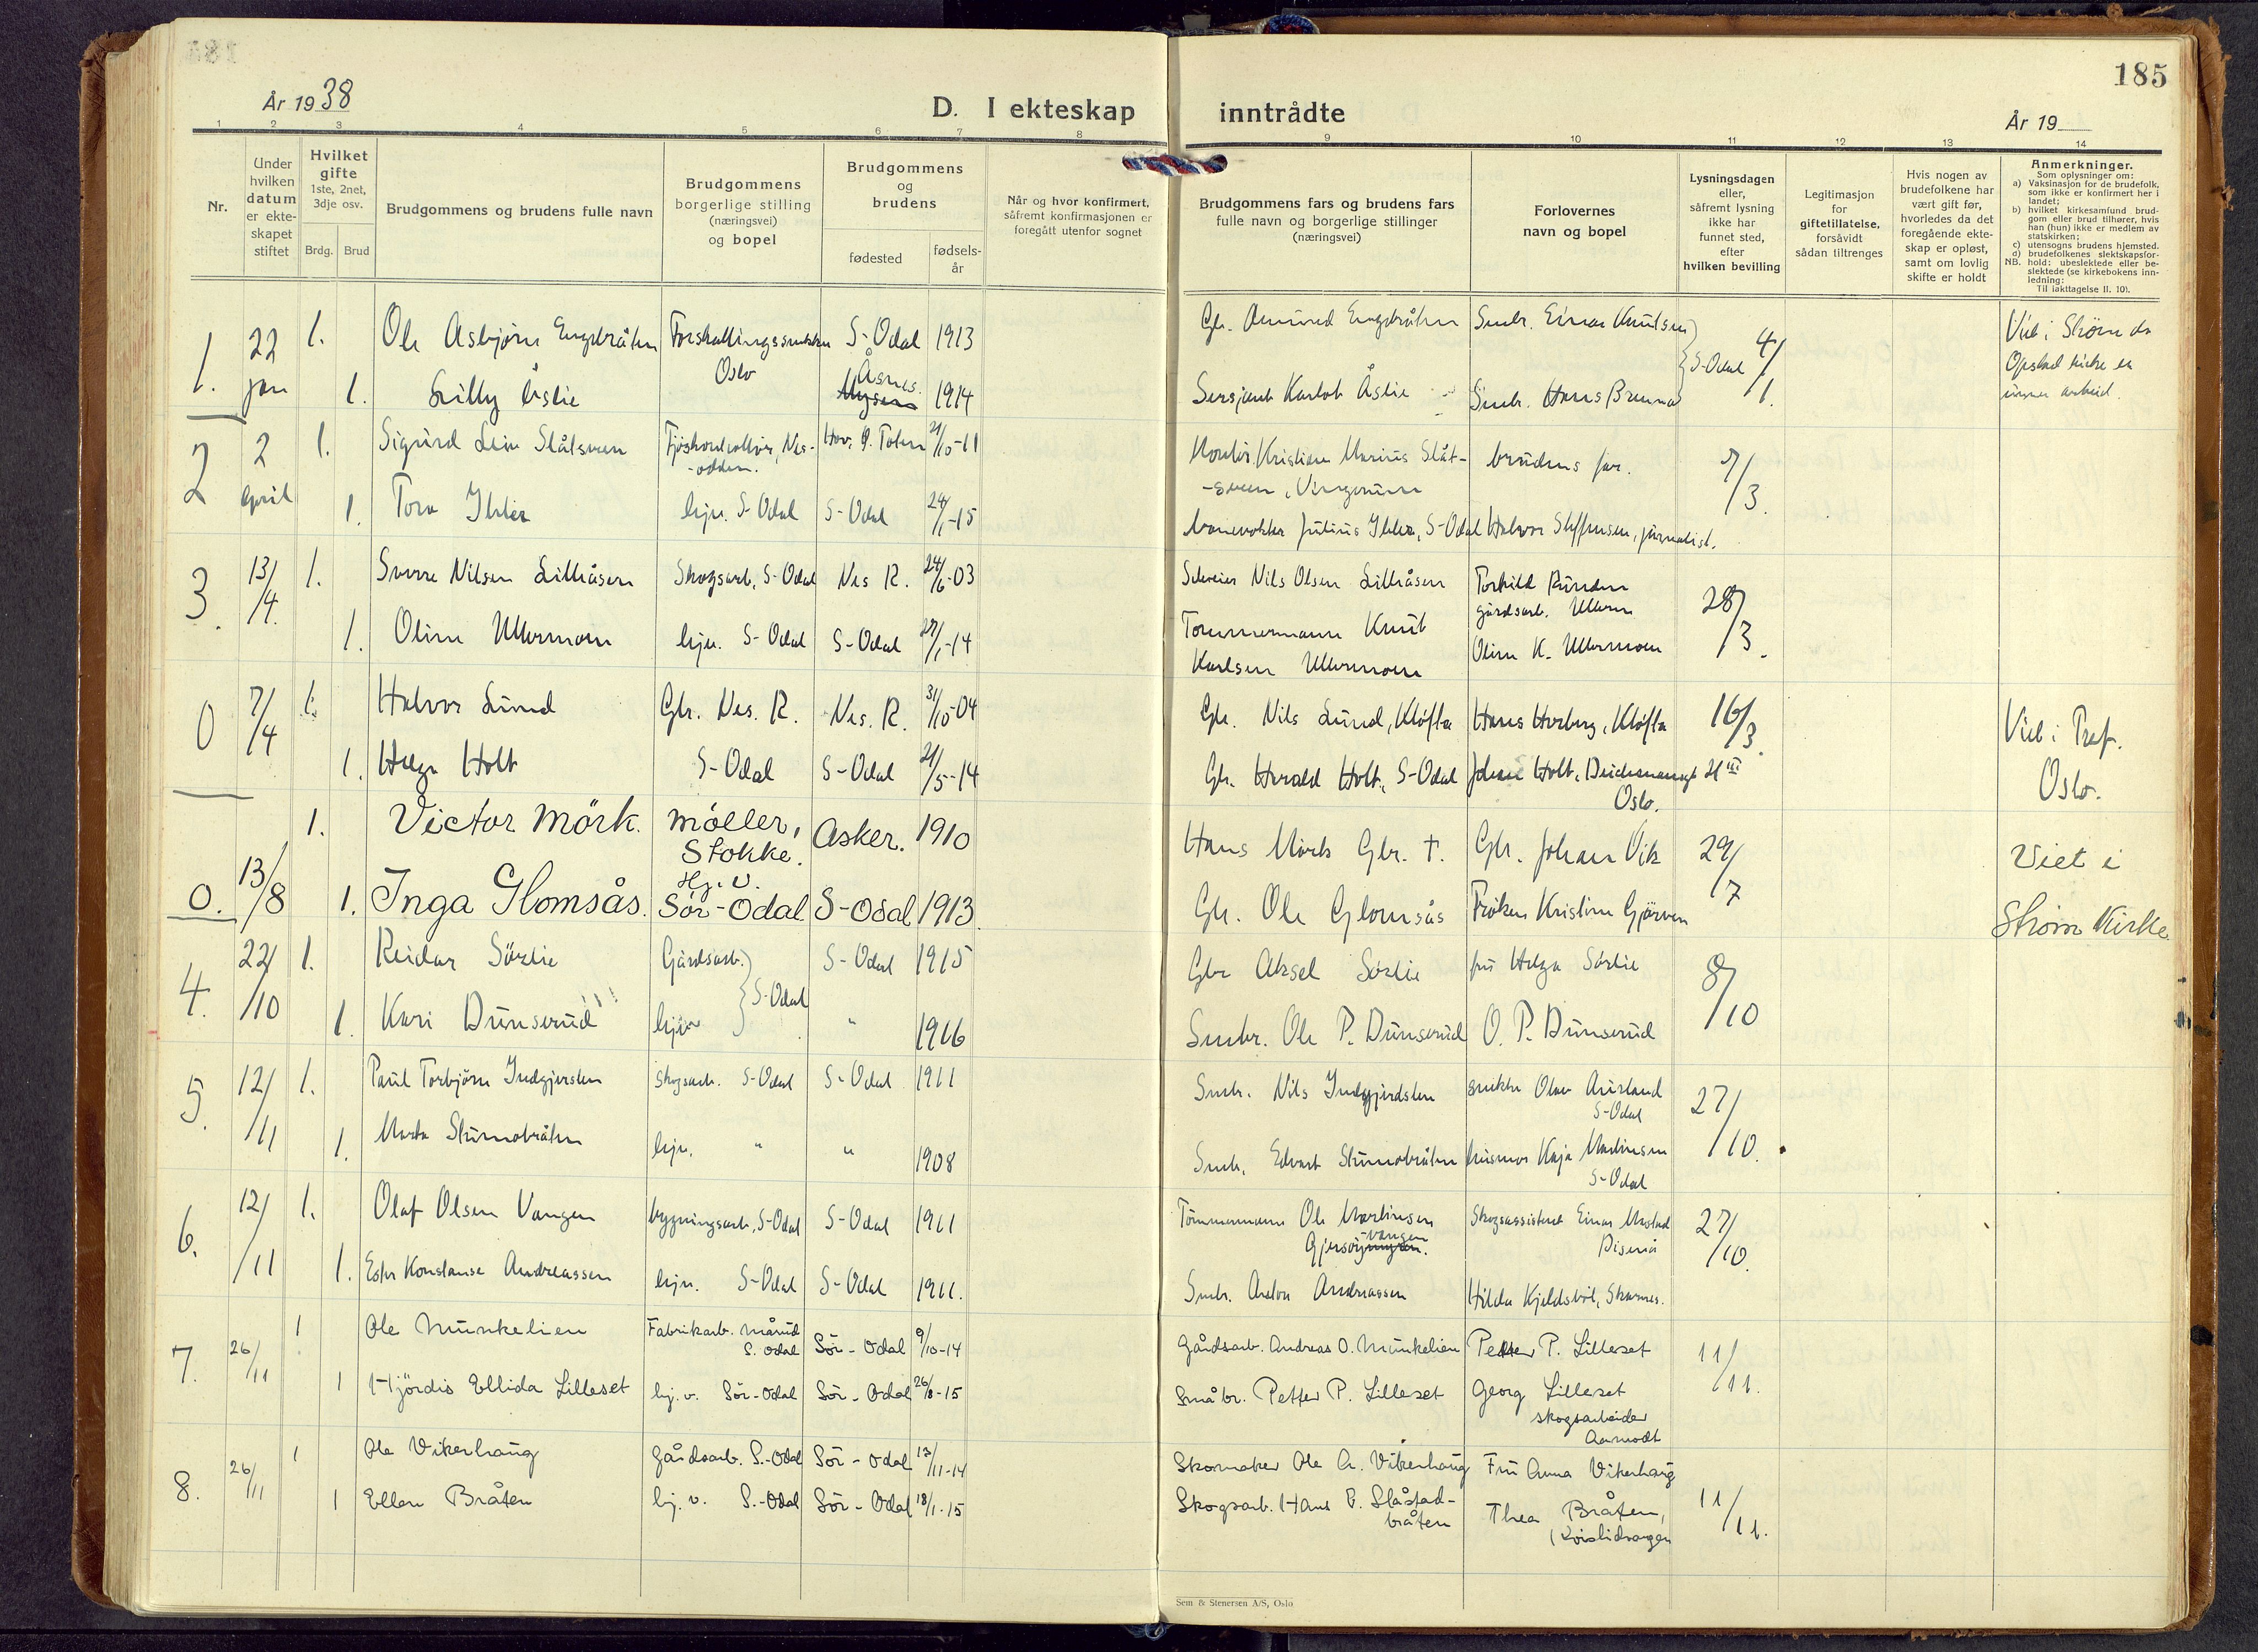 185
År 1938
D. I ekteskap inntrådte
År 19
1 2 3 4 5 6 7 8 9 10 11 12 13 14
Nr.
Under hvilken datum er ekte-skapet stiftet
Hvilket gifte 1ste, 2net, 3dje osv.
Brdg. Brud
Brudgommens og brudens fulle navn
Brudgommens borgerlige stilling (næringsvei) og bopel
Brudgommens og brudens
fødested
fødsels-år
Når og hvor konfirmert, såfremt konfirmasjonen er foregått utenfor sognet
Brudgommens fars og brudens fars fulle navn og borgerlige stillinger (næringsvei)
Forlovernes navn og bopel
Lysningsdagen eller, såfremt lysning ikke har funnet sted, efter hvilken bevilling
Legitimasjon for giftetillatelse, forsåvidt sådan tiltrenges
Hvis nogen av brudefolkene har vært gift før, hvorledes da det foregående ekte-skap er opløst, samt om lovlig skifte er holdt
Anmerkninger.
Som oplysninger om:
a) Vaksinasjon for de brudefolk, som ikke er konfirmert her i landet;
b) hvilket kirkesamfund brud-gom eller brud tilhører, hvis han (hun) ikke er medlem av statskirken;
c) utensogns brudens hjemsted.
d) brudefolkenes slektskapsfor-hold: ubeslektede eller be-slektede (se kirkebokens inn-ledning:
NB.
Til iakttagelse II. 10).
1. 22 jan 1. Ole Asbjørn Engebråten Forskallingssnekker Oslo S-Odal 1913 Gbr. Amund Engebråten Smbr. Einar Knutsen S-Odal 4/1. Viet i Strøm da Opstad kirke er under arbeid.
1. Lilly Åslie Åsnes 1914 Sersjant Karlot Åslie Smbr. Hans Brenna
2 2 april 1. Sigurd Leiv Slåtsveen Fjøskontrollør, Nes-odden. Hov, Ø. Toten 21/10-11 Kontor. Kristian Marius Slåt-sveen, Vingrom brudens far. 7/3.
1. Tora Ihler hju. S-Odal S-Odal 24/1-15 banevokter Julius Ihler, S-Odal Halvor Steffensen, journalist.
3. 13/4. 1. Sverre Nilsen Lillåsen Skogsarb, S-Odal Nes R. 24/6-03 Sliveier Nils Olsen Lillåsen Torhild Runden gårdsarb. Ullern 28/3.
1. Oline Ullernmoen hju. S-Odal S-Odal 27/1-14 Tømmermann Knut Karlsen Ullernmoen Oline K. Ullernmoen
0 7/4 1. Halvor Lund Gbr. Nes. R. Nes. R. 31/10-04 Gbr. Nils Lund, Kløfta Hans Horberg, Kløfta 16/3. Viet i Tref. Oslo.
1. Helga Holt S-Odal S-Odal 21/5-14 Gbr. Harald Holt, S-Odal Johan Holt, Deichmannsgt 21 III Oslo.
0. 13/8 1. Victor Mörk. Møller, Stokke. Asker. 1910 Hans Mörk Gbr. †. Gbr. Johan Vik 29/7 Viet i Strøm Kirke
1. Inga Glomsås. Hj. v. Sør-Odal S-Odal 1913. Gbr. Ole Glomsås Frøken Kristine Gjørven
4. 22/10 1. Reidar Sørlie Gårdsarb. S-Odal S-Odal 1915 Gbr Aksel Sørlie fru Helga Sørlie 8/10
1. Kari Dunserud hjv " 1916 Smbr. Ole P. Dunserud O. P. Dunserud
5. 12/11 1. Paul Torbjørn Indgjerdslen skogsarb. S-Odal S-Odal 1911 Smbr. Nils Indgjerdslen snekker Olav Aurland S-Odal 27/10.
1. Marta Stumobråten hju. " " 1908 Smbr. Edvart Stumobråten husmor Kaja Martinsen S-Odal
6. 12/11 1. Olaf Olsen Vangen bygningsarb, S-Odal S-Odal 1911 Tømmermann Ole Martinsen Gjersøyvangen. Skogsassistent Einar Mostad Disenå 27/10.
1. Ester Konstanse Andreassen hju. S-Odal S-Odal 1911. Smbr. Anton Andreassen Hilda Kjeldsbøl, Skarnes.
7. 26/11 1 Ole Munkelien Fabrikarb. Mårud S. Odal Sör-Odal 9/10-14 Gårdsarb. Andreas O. Munkelien Petter P. Lilleset 11/11.
1 Hjördis Ellida Lilleset hj. v. Sör-Odal Sör-Odal 26/8-15 Småbr. Petter P. Lilleset Georg Lilleset skogsarbeider Aamodt
8. 26/11 1 Ole Vikerhaug Gårdsarb. S.-Odal Sör-Odal 13/11-14 Skomaker Ole A. Vikerhaug Fru Anna Vikerhaug 11/11.
1 Ellen Bråten hj. v. S.-Odal Sör-Odal 18/1-15 Skogsarb. Hans E. Slåstad-bråten Thea Bråten,
Sem & Stenersen A/S, Oslo